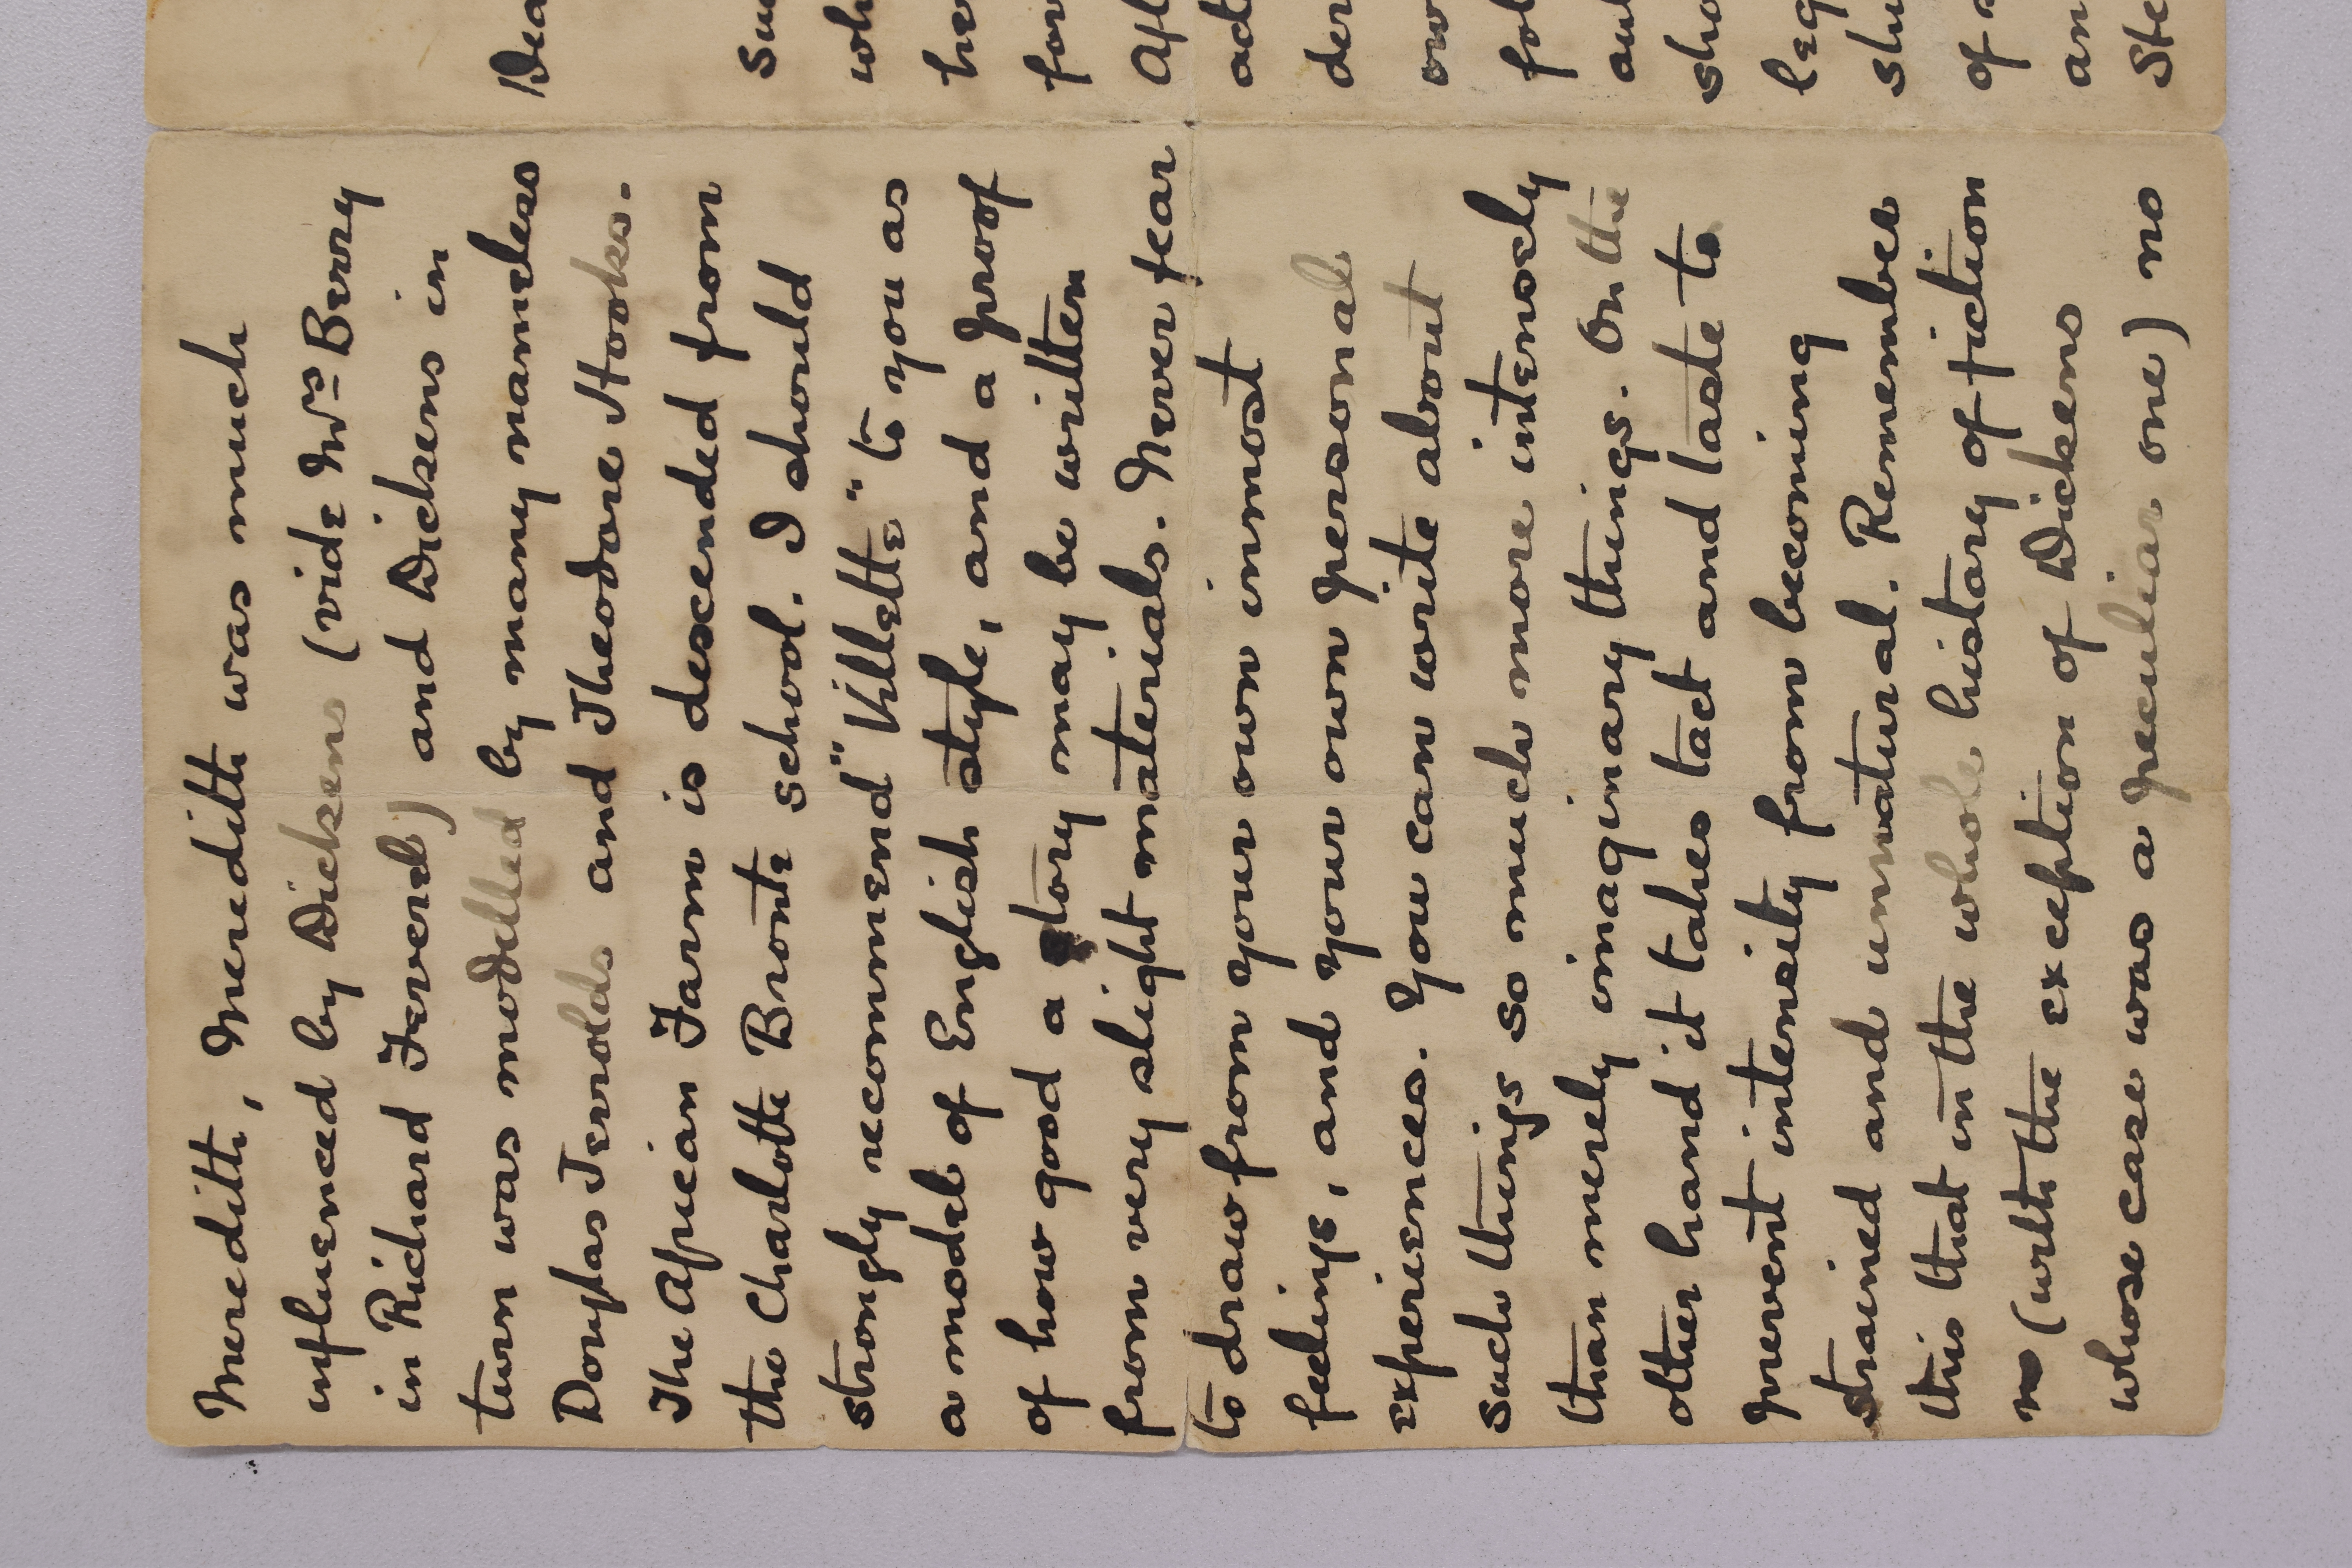 Meredith, Meredith was much
influenced by Dickens (vide Mrs Berry
in Richard Feverel) and Dickens in
turn was modelled by many nameless
Douglas Jerrolds and Theodore Hooks.
The African Farm is descended from
the Charlotte Bronte school. I should
strongly recommend "Villette" to you as
a model of English style, and a proof
of how good a story may be written
from very slight materials. Never fear
to draw from your own inmost
feelings, and your own personal
experiences. You can write about
such things so much more intensely
than merely imaginary things. On the
other hand it takes tact and taste to
prevent intensity from becoming
strained and unnatural. Remember
this that in the whole history of fiction
no (with the exception of Dickens
whose case was a peculiar one) no
Dea
su
wh
he
for
Aft
ad
der
ow
fol
au
sho
leg
shu
of
an
Ste